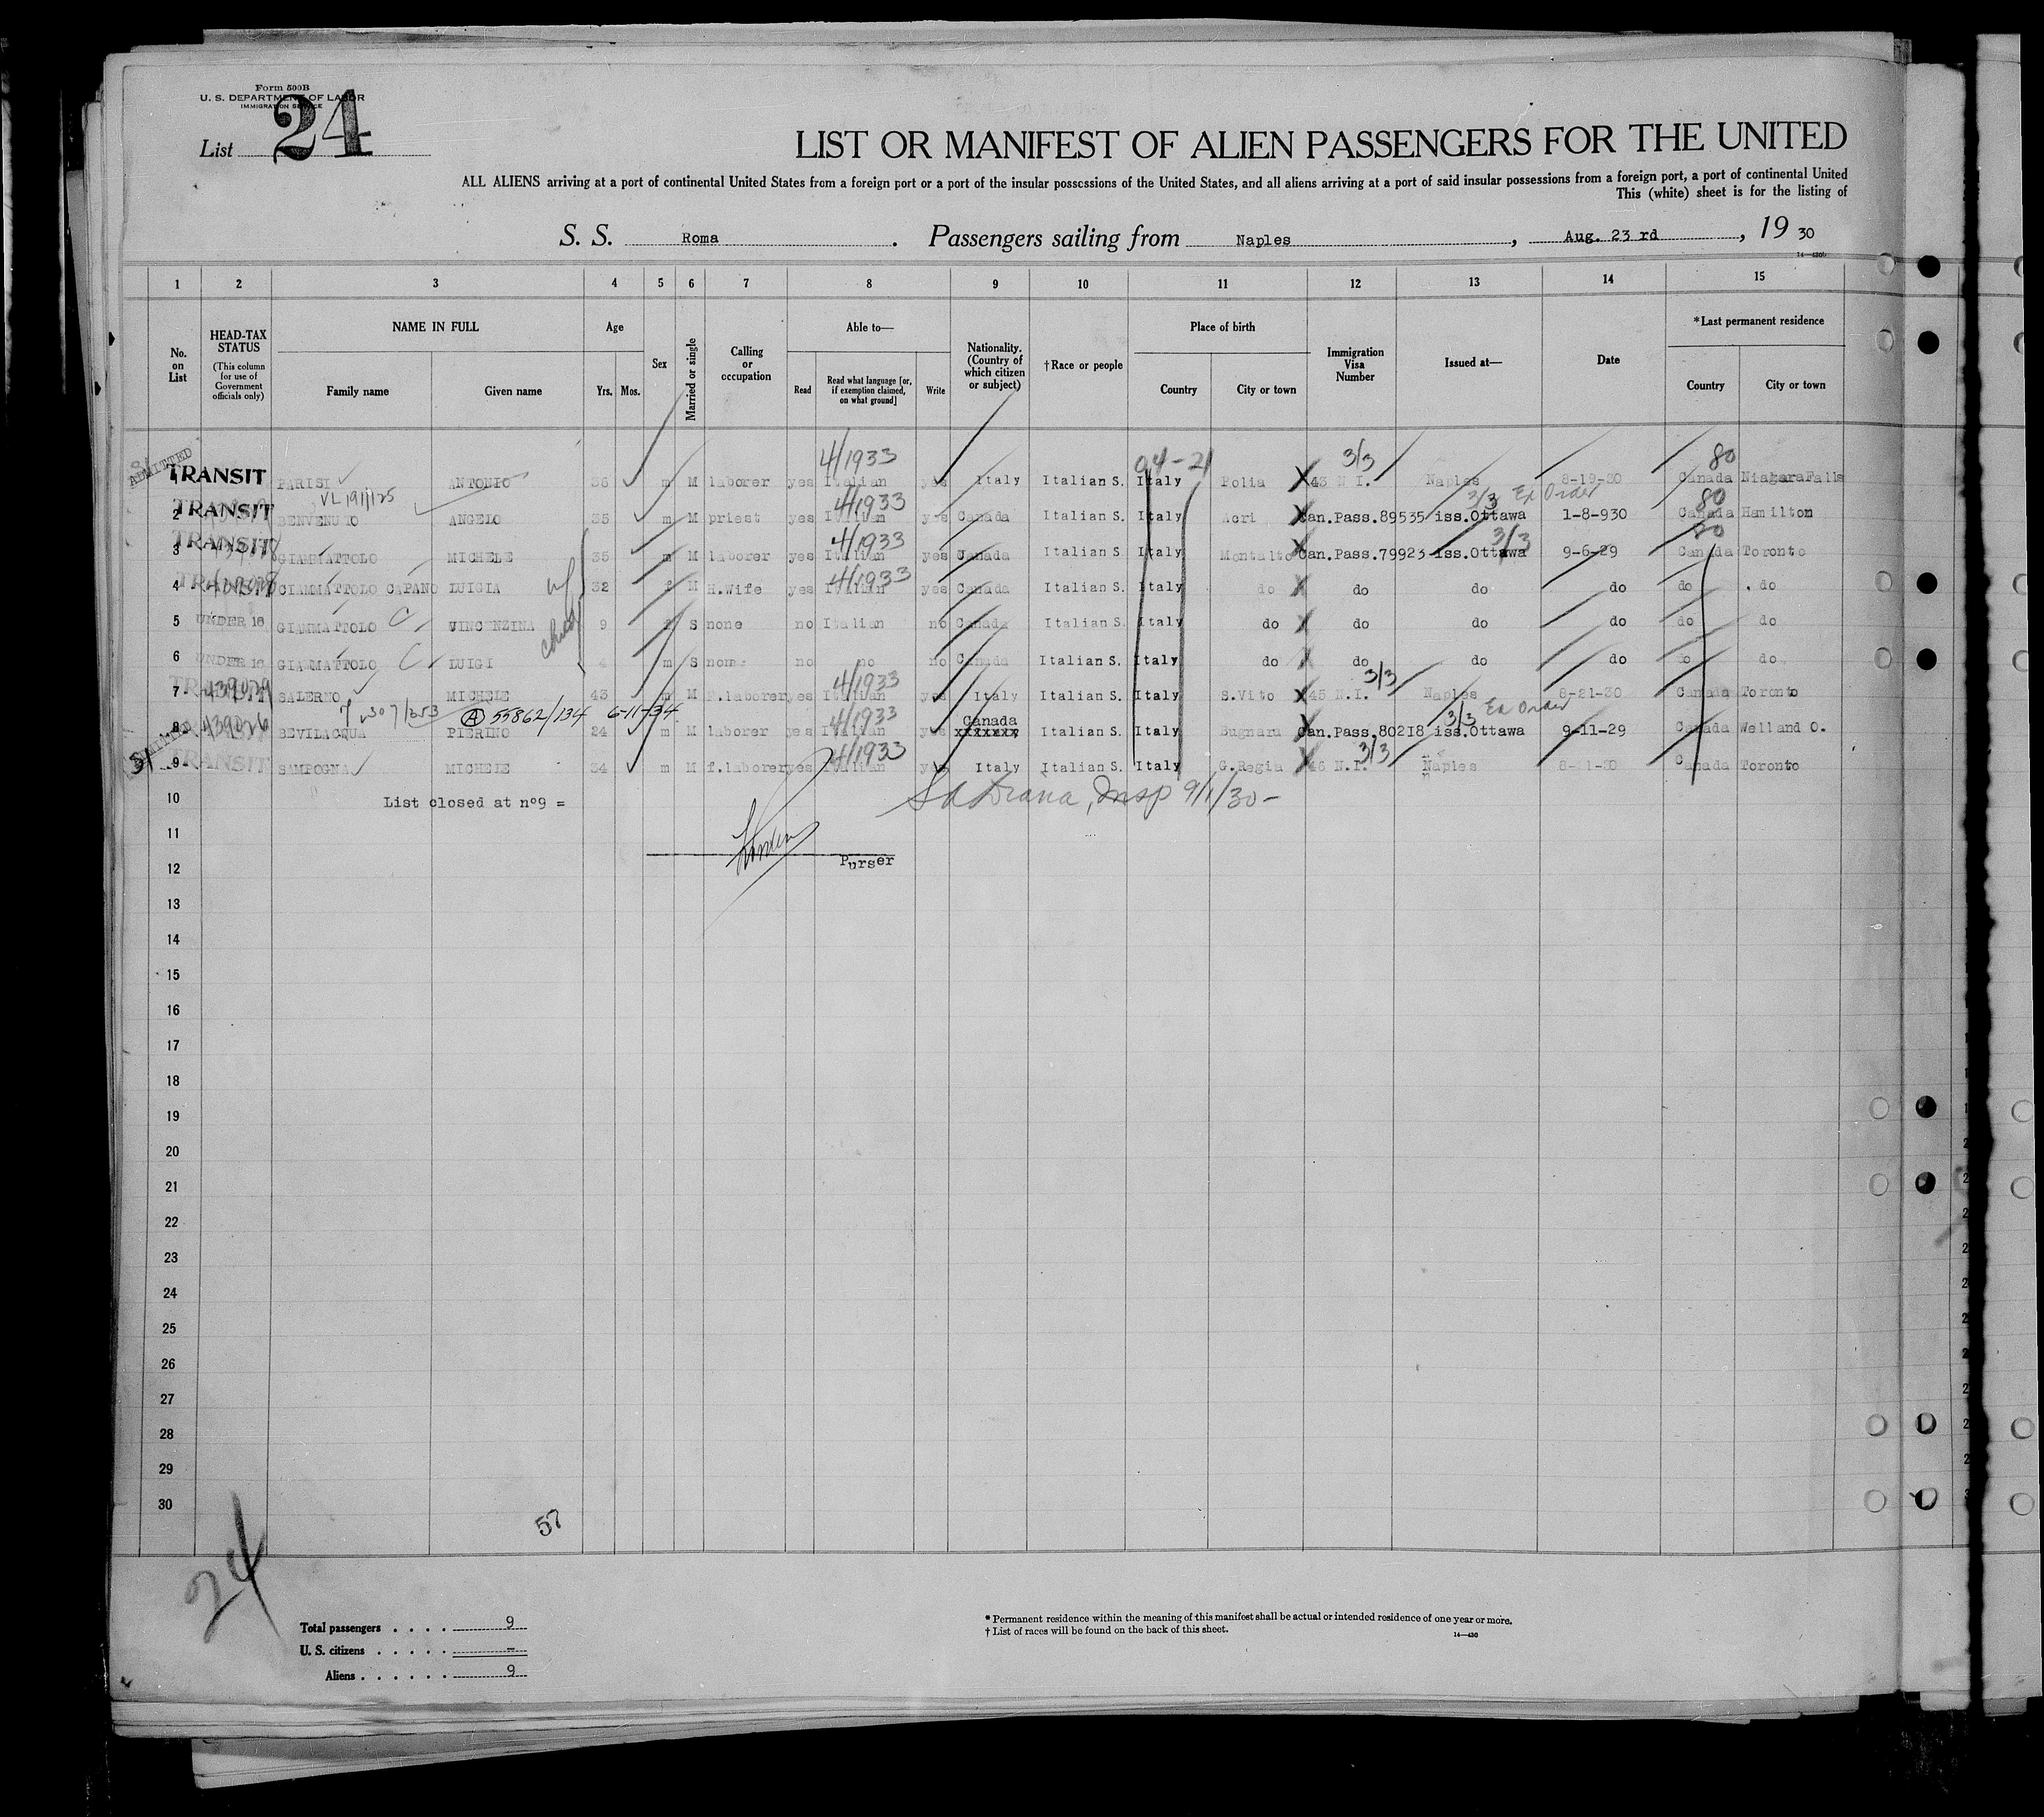 Form 500B
U. S. DEPARTMENT OF LABOR
IMMIGRATION SERVICE
List 24
LIST OR MANIFEST OF ALIEN PASSENGERS FOR THE UNITED
ALL ALIENS arriving at a port of continental United States from a foreign port or a port of the insular possessions of the United States, and all aliens arriving at a port of said insular possessions from a foreign port, a port of continental United
This (white) sheet is for the listing of
S. S. Roma . Passengers sailing from Naples , Aug. 23 rd , 19 30
1 2 3 4 5 6 7 8 9 10 11 12 13 14 15
No. on List
HEAD-TAX STATUS (This column for use of Government officials only)
NAME IN FULL Family name Given name
Age Yrs. Mos.
Sex
Married or single
Calling or occupation
Able to— Read Read what language [or, if exemption claimed, on what ground] Write
Nationality. (Country of which citizen or subject)
†Race or people
Place of birth Country City or town
Immigration Visa Number
Issued at—
Date
*Last permanent residence Country City or town
ADMITTED
4/1933 04-21 3/3 80
1 TRANSIT PARISI ANTONIO 36 m M laborer yes Italian yes Italy Italian S. Italy Polia 43 N I. Naples 8-19-30 Canada Niagara Falls
VL 191/125 4/1933 3/3 Ex Order 80
2 TRANSIT BENVENUTO ANGELO 35 m M priest yes Italian yes Canada Italian S. Italy Acri Can.Pass.89535 iss.Ottawa 1-8-930 Canada Hamilton
4/1933 3/3 80
3 TRANSIT GIAMMATTOLO MICHELE 35 m M laborer yes Italian yes Canada Italian S. Italy Montalto Can.Pass.79923 iss.Ottawa 9-6-29 Canada Toronto
4/1933
4 TRANSIT GIAMMATTOLO CAPANO LUIGIA wf 32 f M H.Wife yes Italian yes Canada Italian S. Italy do do do do do do
5 UNDER 16 GIAMMATTOLO C VINCENZINA child 9 f S none no Italian no Canada Italian S. Italy do do do do do do
6 UNDER 16 GIAMMATTOLO C LUIGI 4 m S none no no no Canada Italian S. Italy do do do do do do
4/1933 3/3
7 TRANSIT 439029 SALERNO MICHELE 43 m M F.laborer yes Italian yes Italy Italian S. Italy S.Vito 45 N.I. Naples 8-21-30 Canada Toronto
A 55862/134 6-11-34 4/1933 Canada 3/3 Ex Order
8 439026 BEVILACQUA PIERINO 24 m M laborer yes Italian yes xxxxxxx Italian S. Italy Bugnara Can.Pass.80218 iss.Ottawa 9-11-29 Canada Welland O.
4/1933 3/3
9 TRANSIT SAMPOGNA MICHELE 34 m M f.laborer yes Italian yes Italy Italian S. Italy G.Regia 46 N.I. Naples Canada Toronto
10 List closed at nº9 =
Insp 9/1/30 -
11
12 Purser
13
14
15
16
17
18
19
20
21
22
23
24
25
26
27
28
29
30
57
24
Total passengers . . . . 9
U. S. citizens . . . . . –
Aliens . . . . . . 9
* Permanent residence within the meaning of this manifest shall be actual or intended residence of one year or more.
† List of races will be found on the back of this sheet.
14—430